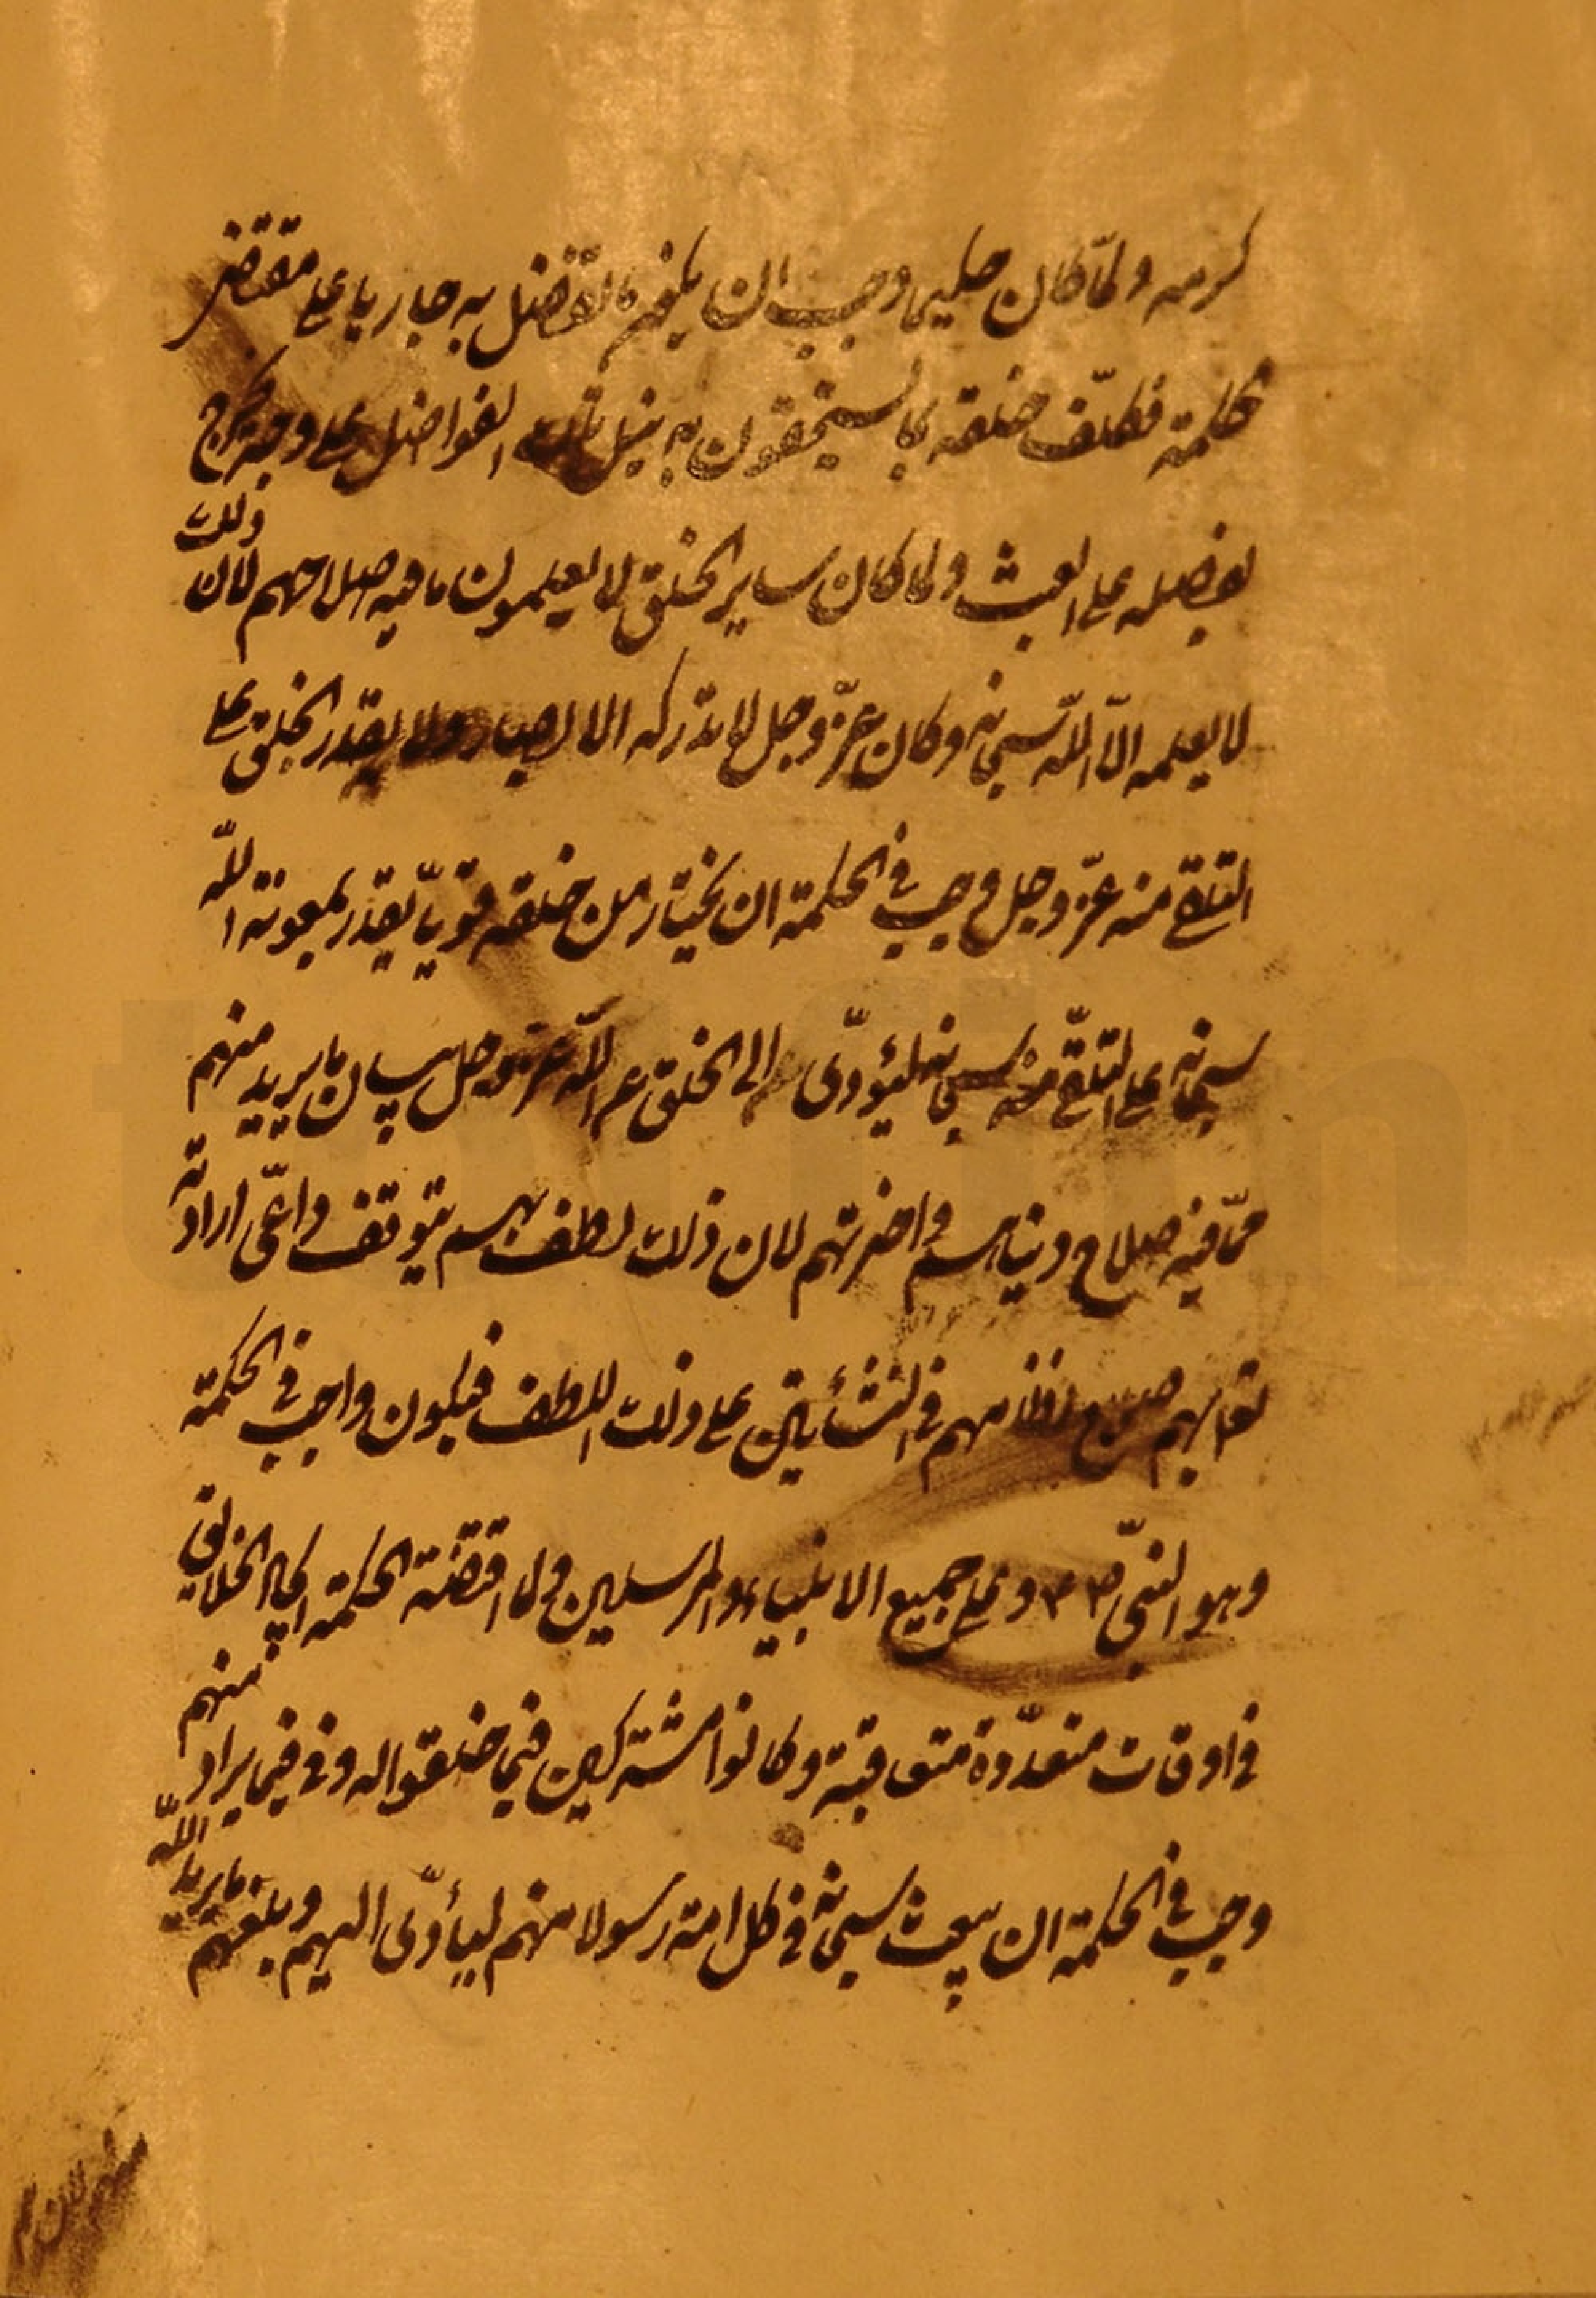 كرمه ولمّا كان حكيما وجب ان يكون ما تفضل به جاريا على مقتضى
حكمته فكلّف خلقه بما يستحقون به نيل تلك الفواضل على وجه يخرج
بفضله على العبث ولما كان ساير الخلق لا يعلمون ما فيه صلاحهم لان ذلك
لا يعلمه الا الله سبحانه وكان عزّ وجل لا تدركه الابصار ولا يقدر الخلق على
التلقى منه عزّ وجل وجب فى الحكمة ان يختار من خلقه قويّا يقدر بمعونة الله
سبحانه على التلقّى منه سبحانه ليؤدّى الى الخلق عن الله عز وجل بيان ما يريد منهم
ممّا فيه صلاح دنياهم واخرتهم لان ذلك لطف بهم يتوقف داعّى ارادته
ثوابهم فى النشأتين على ذلك اللطف فيكون واجب فى الحكمة
وهو النبىّ ص وعلى جميع الانبياء والمرسلين ولما اقتضت الحكمة ايجاد الخلايق
فى اوقات متعدّدة متعاقبة وكانوا مشتركين فيما خلقوا له وفى فيما يراد منهم
وجب فى الحكمة ان يبعث سبحانه فى كل امة رسولا منهم ليأدّى اليهم ويبلغهم ما يريد الله